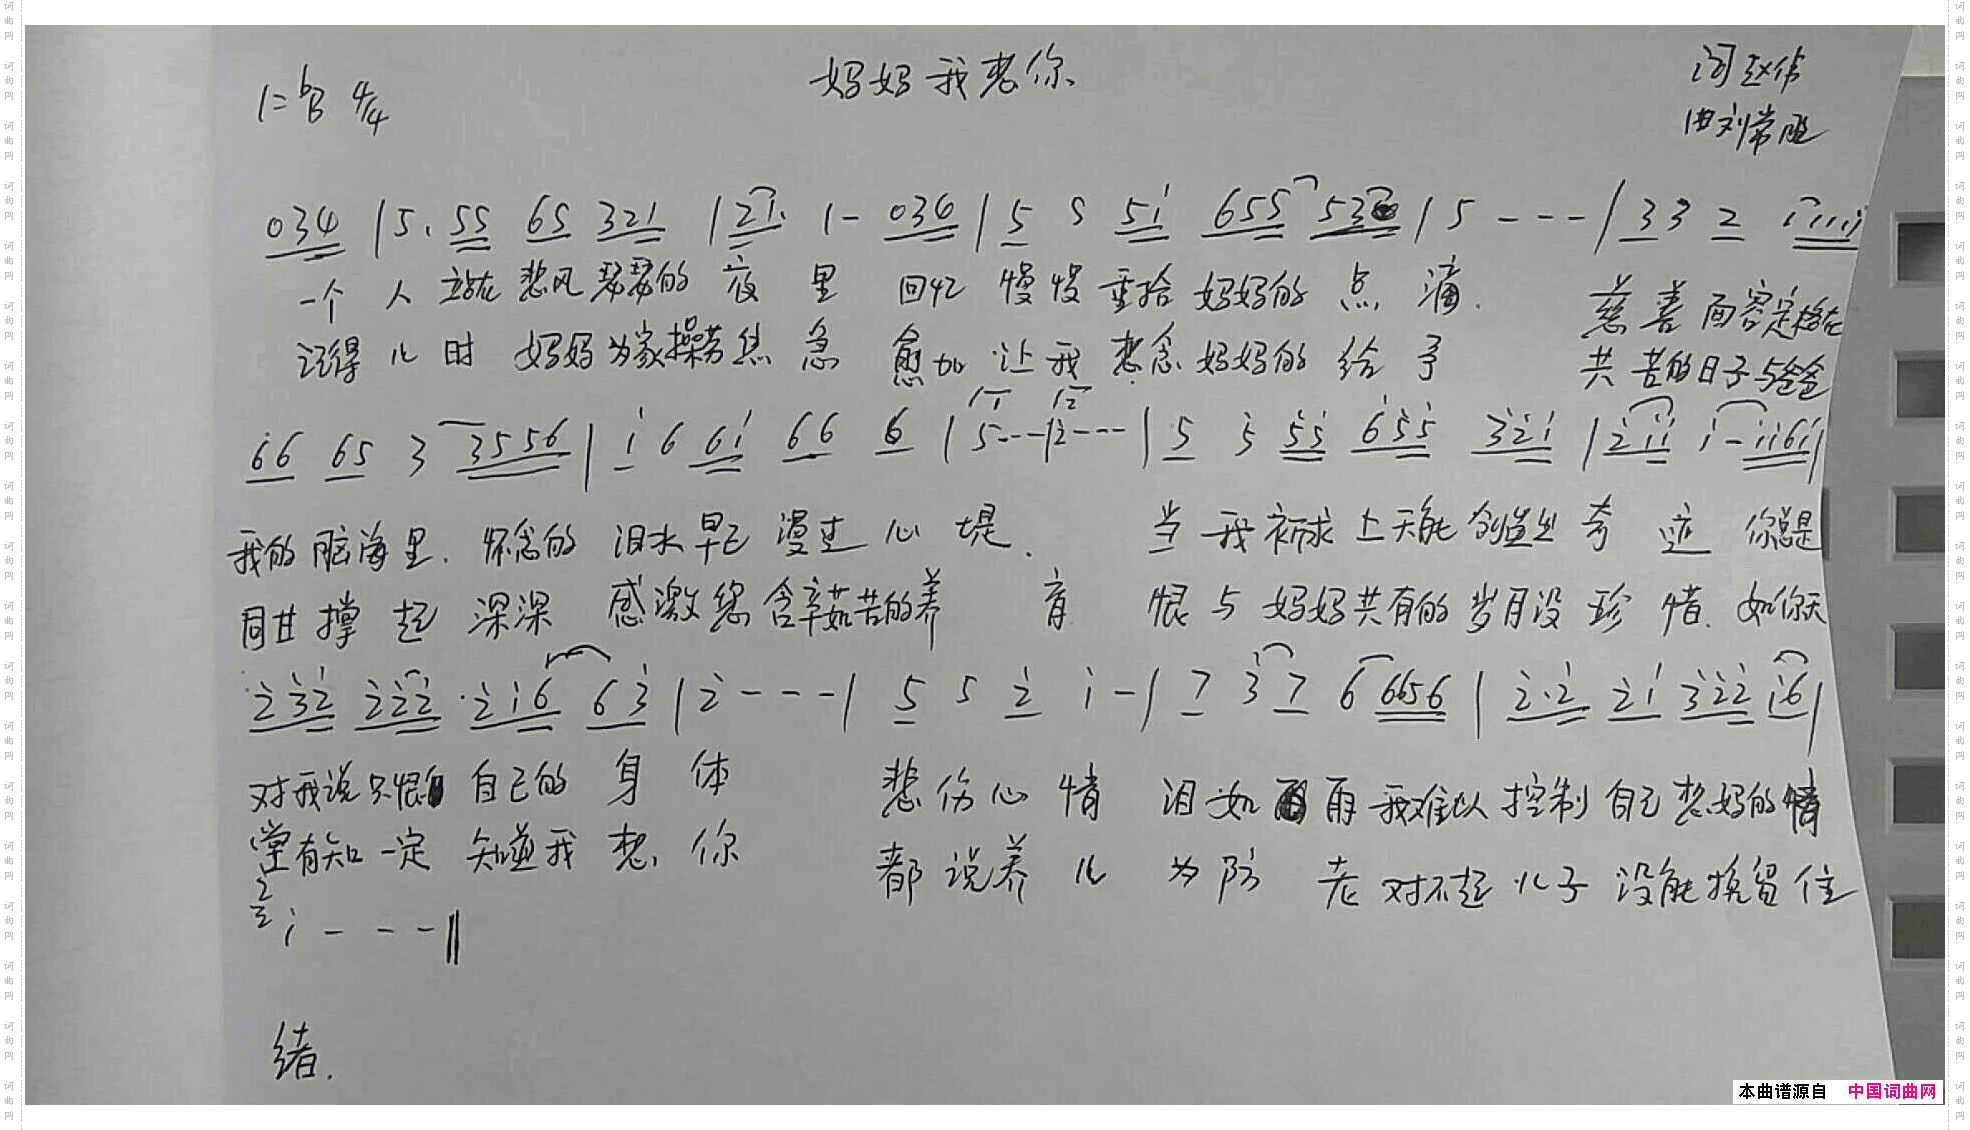 妈妈我想你
词赵伟
1=bB 4/4
曲刘常胜
034 |5. 55 65 321 |21. 1- 036 |5 5 51 655 53 |5 - - -|33 2 11111
一个 人 站在 悲风 瑟瑟的 夜 里 回忆 慢慢 重拾 妈妈的 点 滴. 慈善面容定格在
记得 儿时 妈妈为家操劳 急 愈加 让我 想念妈妈的 给 予 共苦的日子与爸爸
66 65 3 3556 | 1 6 61 66 6 | 5---|2---| 5 5 55 655 321 |211 1-1161|
我的脑海里. 怀念的 泪水早已漫过 心 堤. 当我祈求上天能创造出奇迹 你总是
同甘撑起 深深 感激您含辛茹苦的养 育 恨与妈妈共有的岁月没珍惜. 如你天
232 222 216 63 |2---| 5 5 2 1-| 7 3 7 6 6656 | 2.2 21 322 16|
对我说只恨 自己的 身 体 悲伤心情 泪如 雨 我难以控制自己想妈的情
堂有知一定 知道我想 你 都说养儿 为防 老 对不起儿子没能挽留住
2
1 - - -‖
绪.
本曲谱源自 中国词曲网